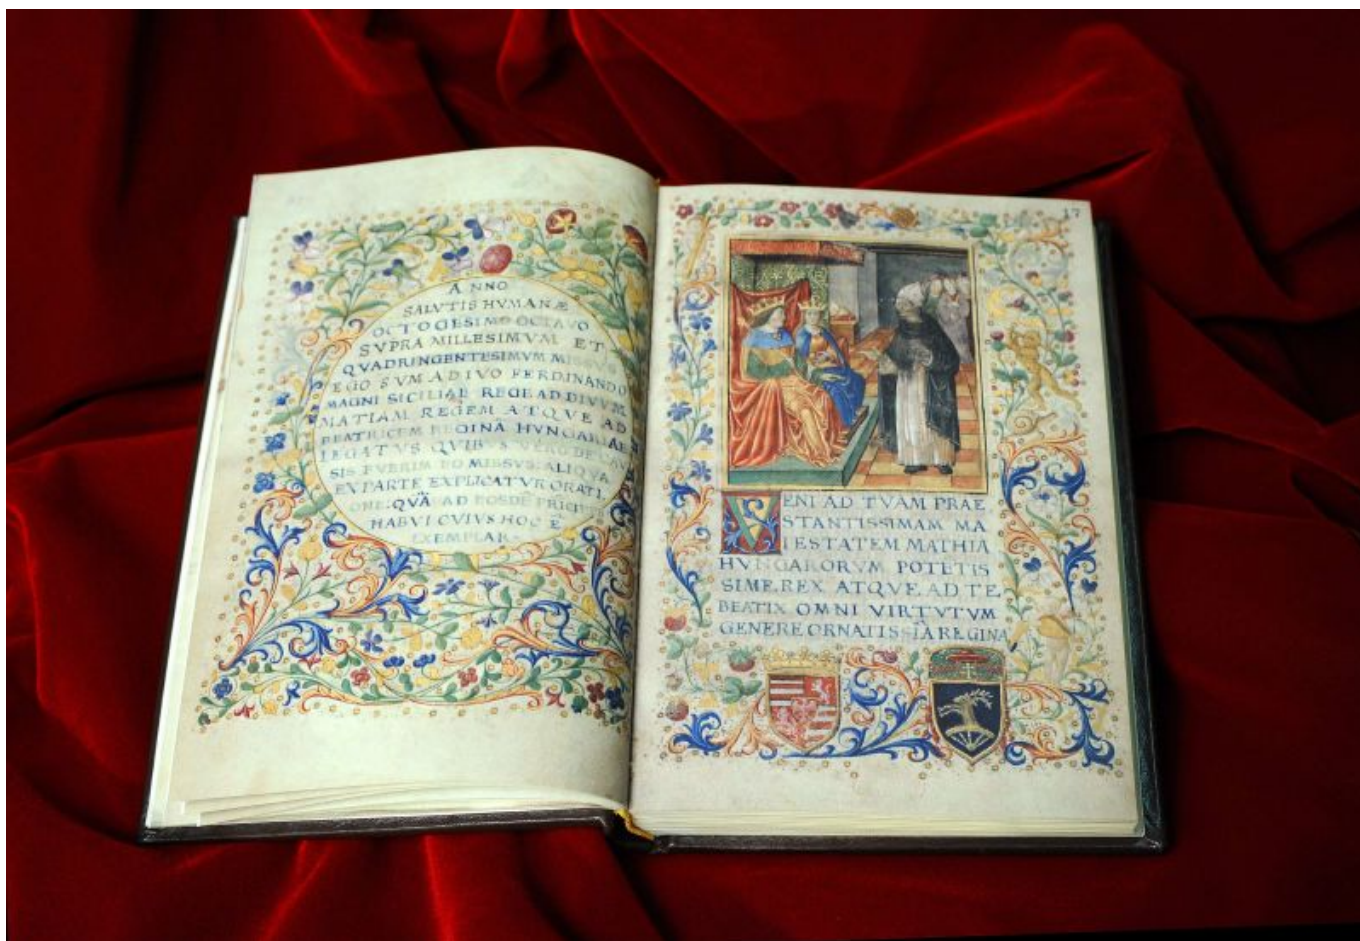 ANNO
SALVTIS HVMANÆ
OCTOGESIMO OCTAVO
SVPRA MILLESIMVM ET
QVADRINGENTESIMVM
EGO SVM A DIVO FERDINANDO
MAGNI SICILIAE REGE AD DIVVM
MATIAM REGEM ATQVE AD
BEATRICEM REGINÃ HVNGARIAE
LEGATVS QVIBVS VERO DE
SIS FVERIM MISSVS ALIQVA
EX PARTE EXPLICATVR ORATI
ONE QVÃ AD EOSDẼ
HABVI CVIVS HOC Ẽ
EXEMPLAR
17
VENI AD TVAM PRAE
STANTISSIMAM MA
IESTATEM MATHIA
HVNGARORVM POTẼTIS
SIME REX ATQVE AD TE
BEATIX OMNI VIRTVTVM
GENERE ORNATISSIÃ REGINA